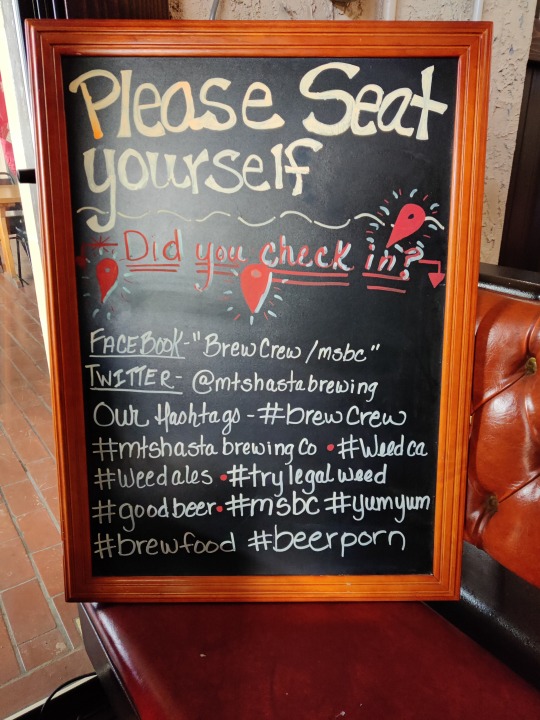 Please Seat
yourself
Did you check in?
FACEBOOK-"BrewCrew/msbc"
TWITTER- @mtshastabrewing
Our Hashtags - #brewCrew
#mtshastabrewingCo • #Weedca
#Weedales • #trylegalweed
#goodbeer • #msbc #yumyum
#brewfood #beerporn